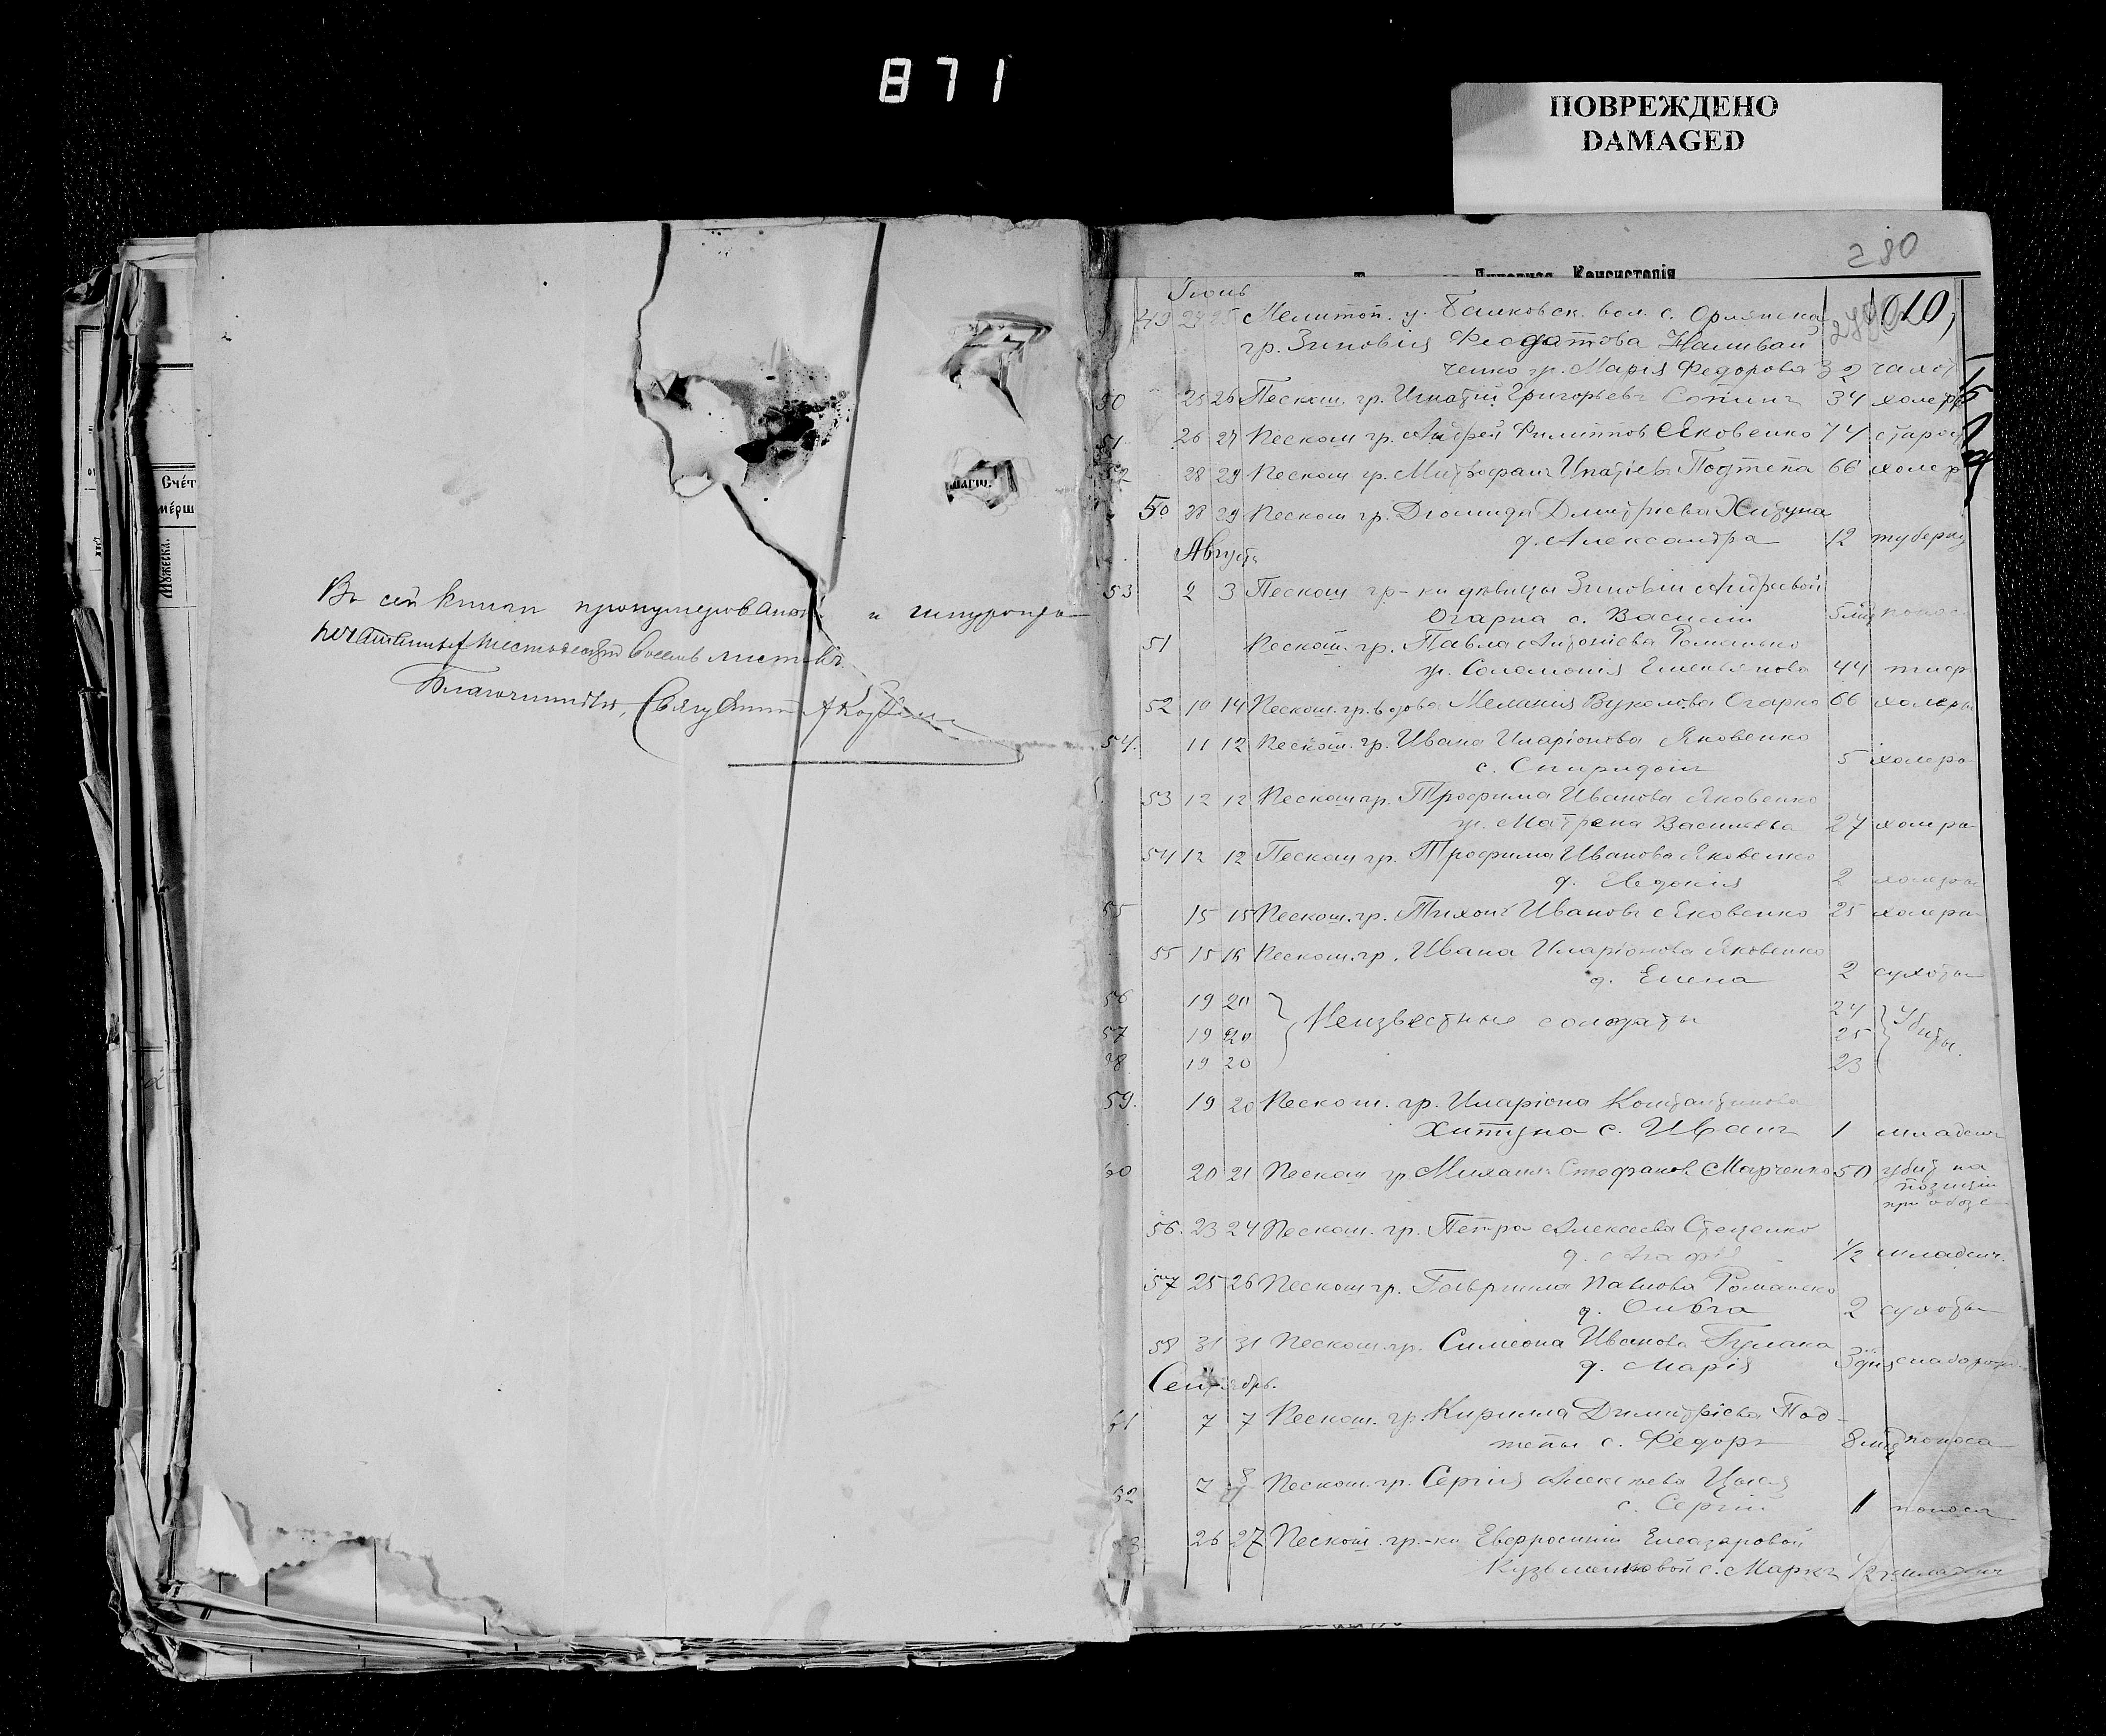 871
ПОВРЕЖДЕНО
DAMAGED
280
Духовная Консисторія
Счет
мерш
Мужеска.
Въ сей книги пронумерованныхъ и шнуро
печатанныхъ шестьдесят восемь листовъ.
Благочинный, Священник
Іюль
49 24 25 Мелитоп. у. вол. с. Орлянска
гр. Зиновія Феодотова Наливай
ченко гр. Марія Федорова 32 чахот
50 25 26 Пескош. гр. Игнатій Григорьевъ 34 холеры
51 26 27 Пескош гр. Андрей Филиппов Яковенко 74 старост
52 28 29 Пескош гр. Митрофанъ Игнатіевъ Подтепа 66 холер
50 28 29 Пескош гр. Діомида Дмитріева Хитуна
д. Александра 12 туберкул
Августъ
53 2 3 Пескош гр-ки девицы Зиновіи Андреевой
Огарка с. Василій 5 мц поноса
51 Пескош. гр. Павла Антоніева Романько
ж. Соломонія Емельянова 44 тиф
52 10 14 Пескош. гр. вдова Меланія Вуколова Огарко 66 холеры
54. 11 12 Пескош. гр. Ивана Иларіонова Яковенко
с. Спиридонъ 5 холера
53 12 12 Пескош гр. Трофима Иванова Яковенко
ж. Матрена Васильева 27 холера
54 12 12 Пескош гр. Трофима Иванова Яковенко
д. Евдокія 2 холеры
55 15 15 Пескош. гр. Тихонъ Ивановъ Яковенко 25 холеры
55 15 16 Пескош. гр. Ивана Иларіонова Яковенко
д. Елена 2 сухоты
56 19 20 24
Неизвестные солдаты Убиты.
57 19 20 25
58 19 20 23
59. 19 20 Пескош. гр. Иларіона Константинова
Хитуна с. Иванъ 1 младенч
60 20 21 Пескош гр Михаилъ Стефановъ Марченко 50 убит на
позиціи
при обозе
56. 23 24 Пескош. гр. Петра Алексеева Стеценко
д. Агафія 1/2 младенч.
57 25 26 Пескош гр. Гавриила Павлова Романько
д. Ольга 2 сухоты
58 31 31 Пескош. гр. Симеона Иванова Гулака
д. Марія 3 дня слаборожд
Сентябрь.
61 7 7 Пескош. гр. Кирилла Димитріева Под-
тепы с. Федоръ 8 мц поноса
62 7 8 Пескош. гр. Сергія Алексеева
с. Сергій 1 поноса
63 26 27 Пескош. гр.-ки Евфросиніи Елеазаровой
Кузьменковой с. Маркъ 1/2 г. младенч